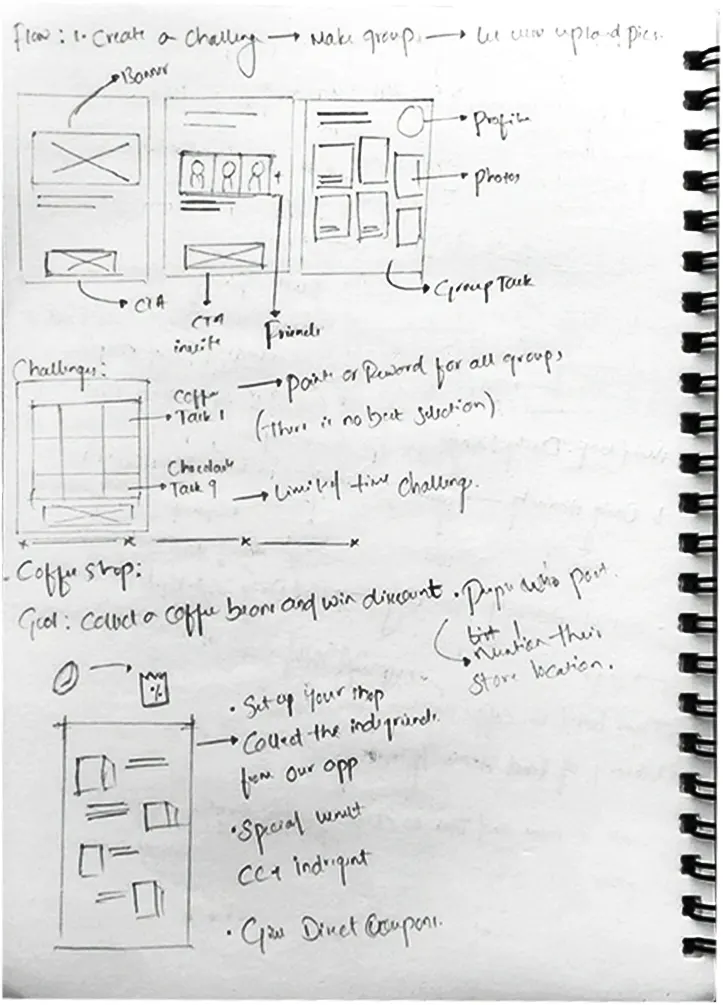 Flow: 1. Create a Challeng → Make group. → Let user upload pics.
Banner
Profile
Photos
Group Task
CTA
CTA
invite
Friends
Challenges:
Coffee
Task 1
→ Points or Reward for all groups
(There is no best selection)
Chocolate
Task 9
→ Limited time challeng.
Coffee shop:
Goal: Collect a coffee beans and win discount
• who post
mention their
store location.
%
• Set up your shop
→ Collect the
from our app
• Special
• Give Direct Coupons.